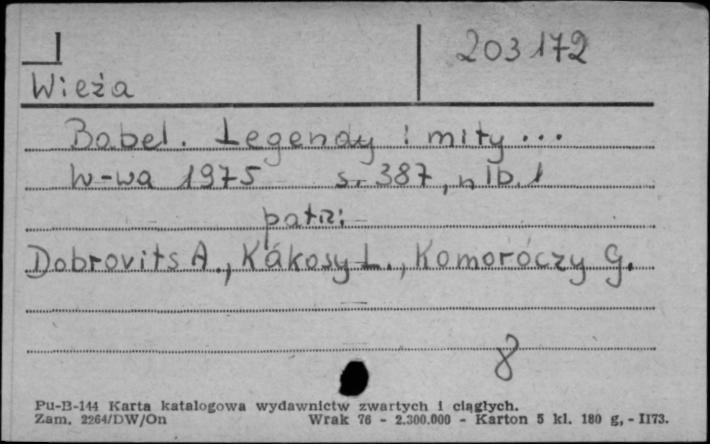 203172
Wieża
Babel. Legendy i mity ...
W-wa 1975 s. 387, nlb. 1
patrz:
Dobrovits A., Kákosy L., Komoróczy G.
8
Pu-B-144 Karta katalogowa wydawnictw zwartych i ciągłych.
Zam. 2264/DW/On Wrak 76 - 2.300.000 - Karton 5 kl. 180 g, - II73.